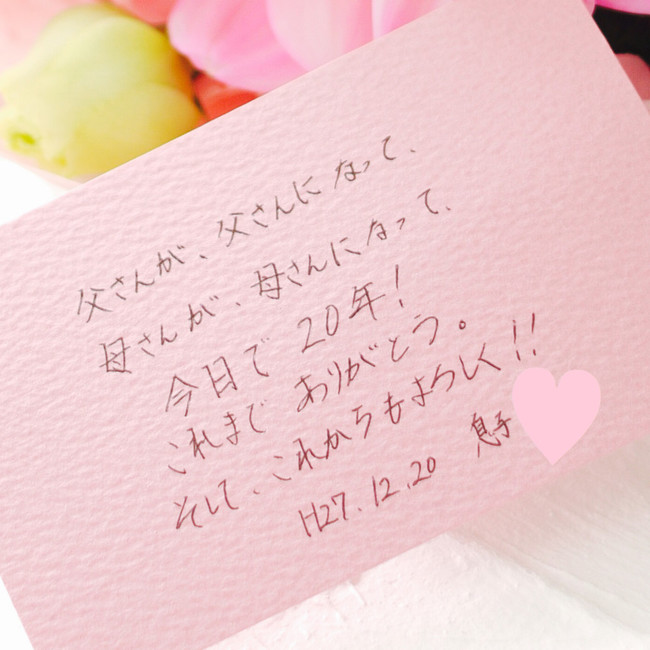 父さんが、父さんになって、
母さんが、母さんになって、
今日で20年!
これまでありがとう。
そして、これからもよろしく!!
H27.12.20 息子